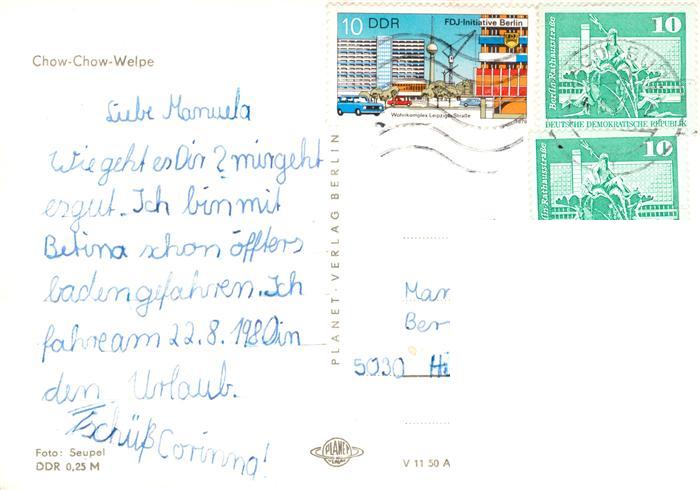 Chow-Chow-Welpe
Liebe Manuela
Wie geht es Dir? mir geht
es gut. Ich bin mit
Betina schon öffters
baden gefahren. Ich
fahre am 22.8.1980 in
den Urlaub.
Tschüß Corinna!
Foto: Seupel
DDR 0,25 M
PLANET-VERLAG BERLIN
PLANET
V 11 50 A
10 DDR
FDJ-Initiative Berlin
Wohnkomplex Leipziger Straße
1979
10
Berlin-Rathausstraße
DEUTSCHE DEMOKRATISCHE REPUBLIK
10
lin-Rathausstraße
Man
Ber
5030 Hi